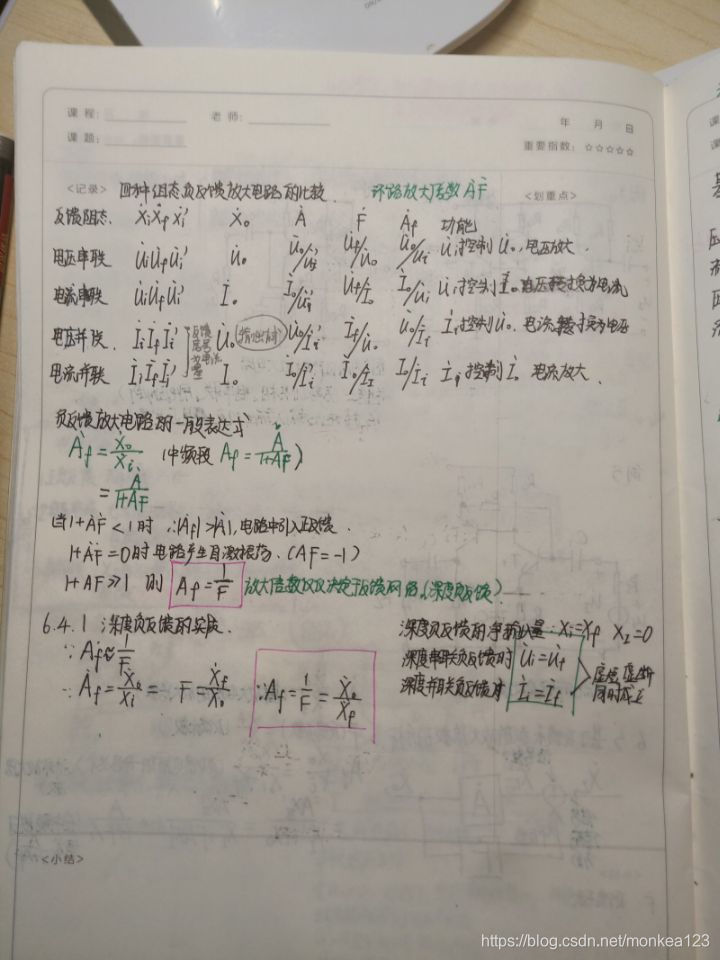 课程: 老师: 年 月 日
课题: 重要指数: ☆☆☆☆☆
<记录> 四种组态负反馈放大电路的比较. 环路放大系数 ȦḞ <划重点>
反馈组态. Ẋi Ẋf Ẋi' Ẋo Ȧ Ḟ Ȧf 功能
电压串联 U̇i U̇f U̇i' U̇o U̇o/U̇i' U̇f/U̇o U̇o/U̇i U̇i控制U̇o,电压放大.
电流串联 U̇i U̇f U̇i' İo İo/U̇i' U̇f/İo İo/U̇i U̇i控制İo 电压转换为电流
电压并联. İi İf İi' 反馈 U̇o U̇o/İi' İf/U̇o U̇o/İi İi控制U̇o. 电流转换为电压
电流并联 İi İf İi' İo İo/İi' İo/İi İi控制İo 电流放大.
负反馈放大电路的一般表达式
Ȧf = Ẋo/Ẋi (中频段 Af = A/1+AF)
= A/1+AF
当1+ȦḞ<1时 ∴|Ȧf|>|A|,电路中引入正反馈.
1+ȦḞ=0时电路产生自激振荡. (AF=-1)
1+AF≫1 则 Af=1/F 放大倍数仅仅决定于反馈网络.(深度负反馈).
6.4.1 深度负反馈的实质. 深度负反馈的净输入量: Xi=Xf
∵Af≈1/F 深度串联负反馈时 U̇i=U̇f
∵Ȧf=Ẋo/Ẋi = F=Ẋf/Ẋo ∴Af=1/F=Ẋo/Ẋf 深度并联负反馈时 İi=İf 虚短 虚断
<小结>
https://blog.csdn.net/monkea123